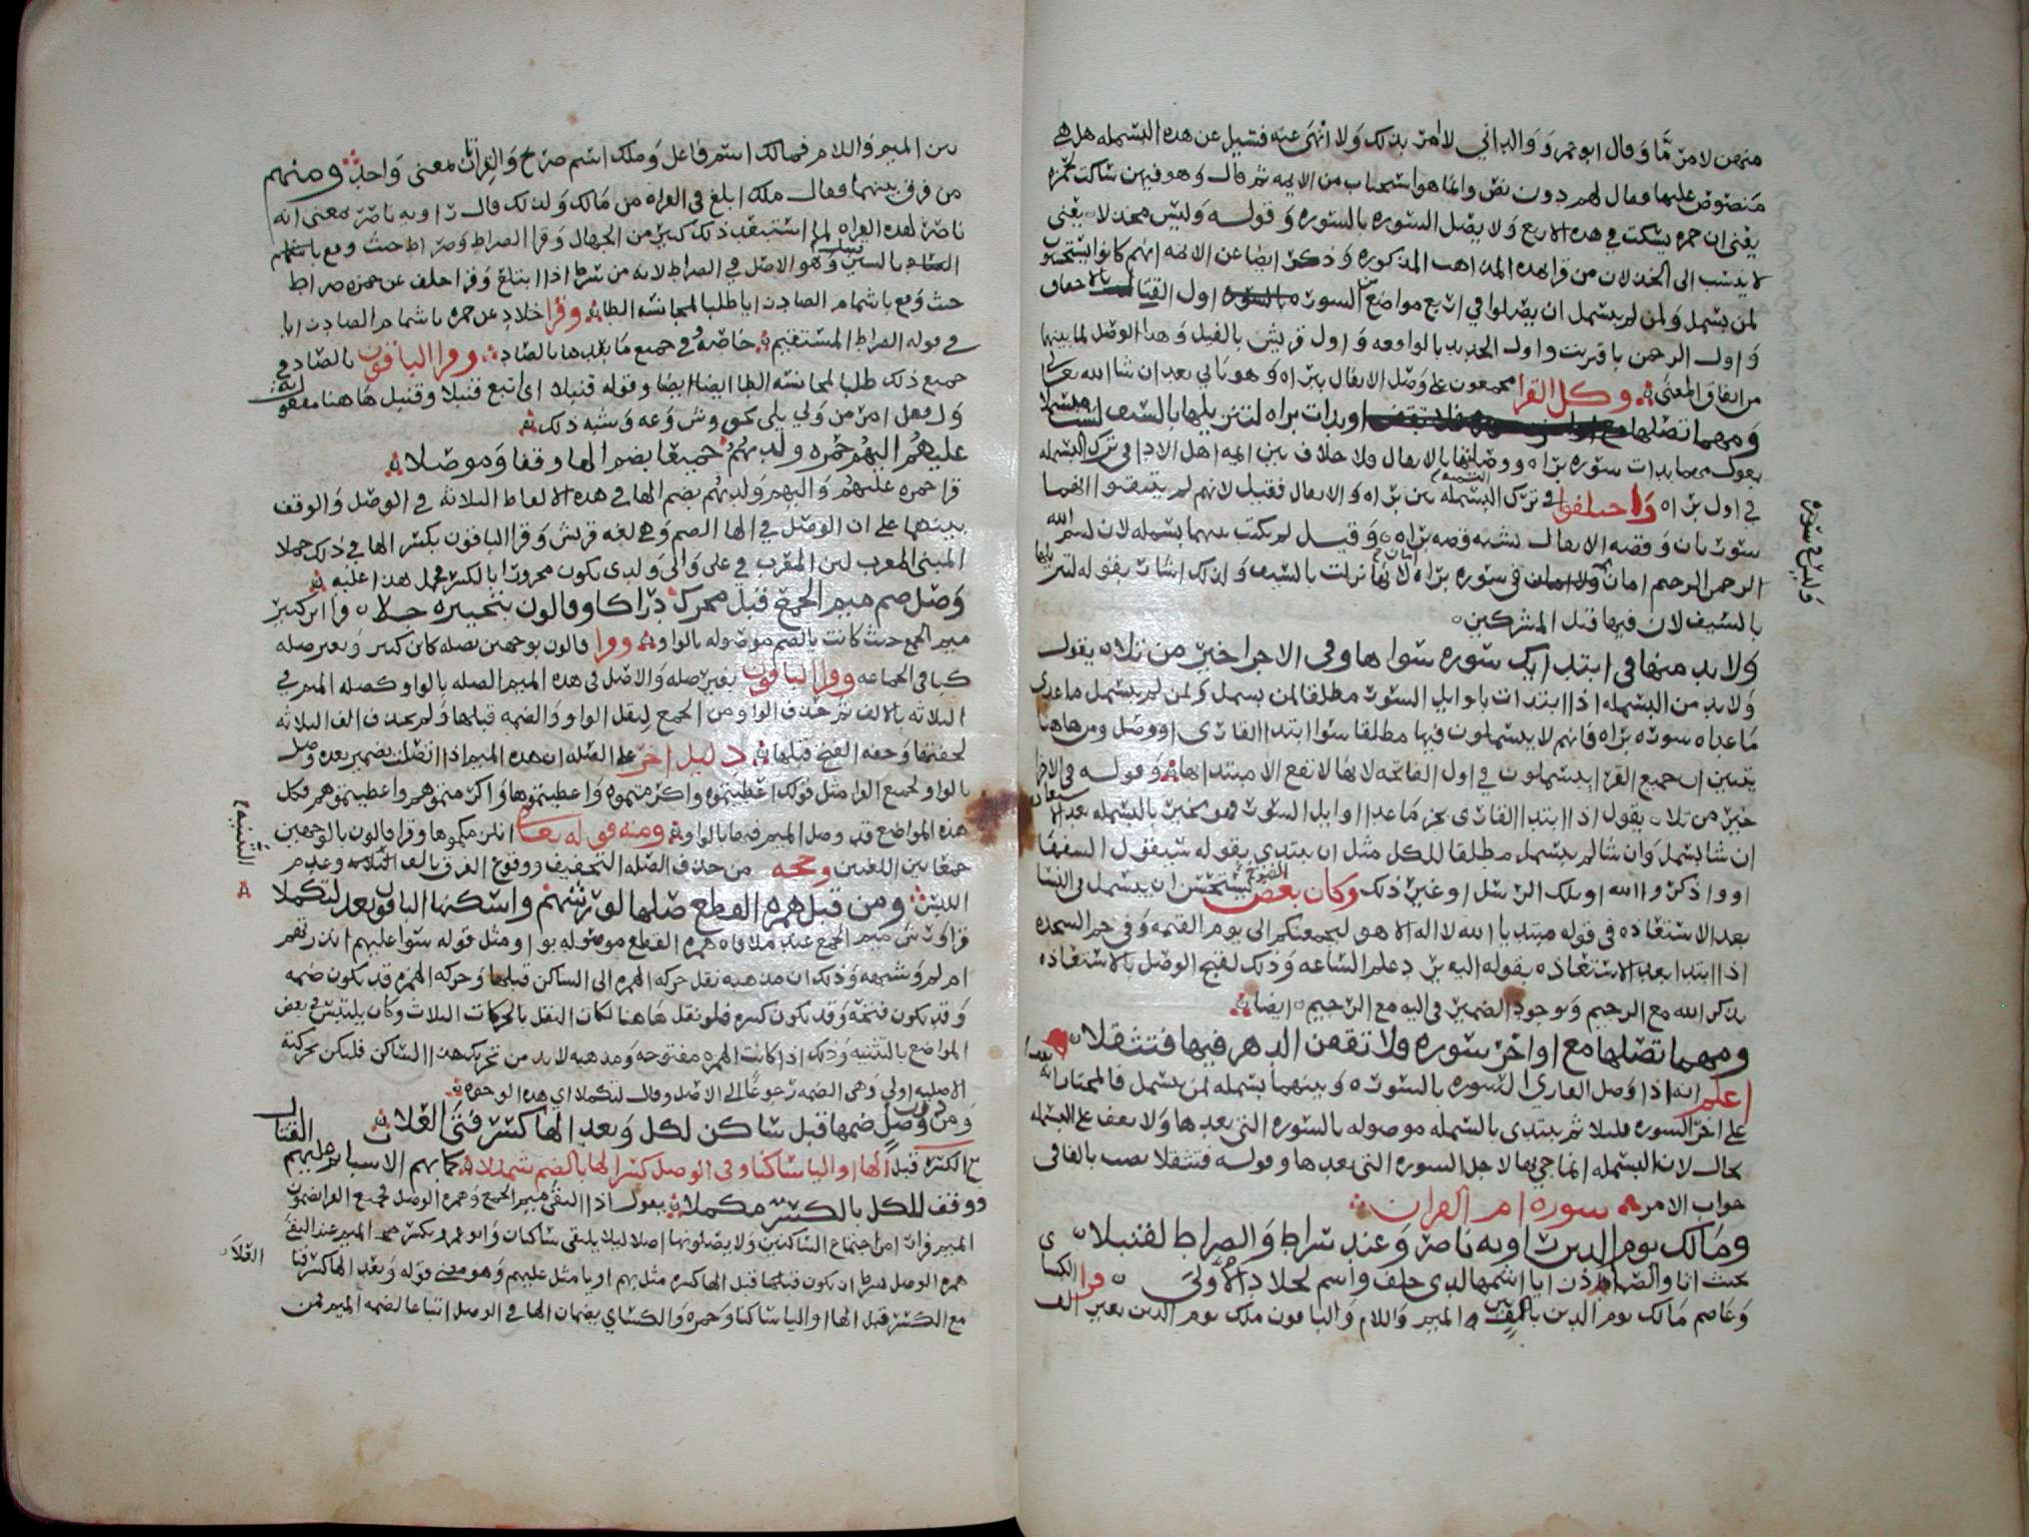 منهن لامن مّا وقال ابو عمرو والداني لا امر بذلك ولا انهى عنه فسيل عن هذه البسمله هل هي
منصوص عليها فقال لهم دون نص وانما هو استحباب من الايمه ثم قال وهو فيهن ساكت لحمزه
يعنى ان حمزه يسكت في هذه الاربع ولا يصل السوره بالسوره وقوله وليس مخذلا يعنى
لا ينسب الى الخذلان من قرا بهذه المذاهب المذكوره وذكر ايضا عن الايمه انهم كانوا يستحبون
لمن بسمل ولمن لم يبسمل ان يصلوا في اربع مواضع السوره اول القتال بالاحقاف
واول الرحمن باقتربت واول الحديد بالواقعه واول قريش بالفيل وهذا الوصل لما بينهما
من اتفاق المعنى وكل القرا مجمعون على وصل الانفال ببراه وهو ياتي بعد ان شا الله تعالى
ومهما تصلها او بدات براه لتنزيلها بالسيف لست مبسملا
يقول مهما بدات سوره براه ووصلتها بالانفال ولا خلاف بين ايمه اهل الادا في ترك البسمله
في اول براه واختلفوا في ترك البسمله بين براه والانفال فقيل لانهم لم يتيقنوا انهما
سورتان وقصه الانفال تشبه قصه براه وقيل لم يكتب بينهما بسمله لان بسم الله
الرحمن الرحيم امان ولا امان في سوره براه لانها نزلت بالسيف ولذلك اشار بقوله لتنزيلها
بالسيف لان فيها قتل المشركين
ولا بد منها في ابتدايك سوره سواها وفي الاجزا خير من تلا يقول
ولا بد من البسمله اذا ابتدات باوايل السور مطلقا لمن بسمل ولمن لم يبسمل ما عدى
ما عداه سوره براه فانهم لا يبسملون فيها مطلقا سوا ابتدا القارى او وصل ومن هاهنا
يتبين ان جميع القرا يبسملون في اول الفاتحه لانها لا تقع الا مبتدا بها وقوله في الاجزا
خير من تلا يقول اذا ابتدا القارى بجز ما عدا اوايل السور فهو مخير بالبسمله بعد الاستعاذه
ان شا بسمل وان شا لم يبسمل مطلقا للكل مثل ان يبتدي بقوله سيقول السفها
او واذكروا الله او تلك الرسل او غير ذلك وكان بعض الشيوخ يستحسن ان يبسمل في النسا
بعد الاستعاذه في قوله مبتديا الله لا اله الا هو ليجمعنكم الى يوم القيمه وفي حم السجده
اذا ابتدا بعد الاستعاذه بقوله اليه يرد علم الساعه وذلك لقبح الوصل بالاستعاذه
بذكر الله مع الرجيم وبوجود الضمير في اليه مع الرجيم ايضا
ومهما تصلها مع اواخر سوره فلا تقفن الدهر فيها فتثقلا
اعلم انه اذا وصل القاري السوره بالسوره وبينهما بسمله لمن يبسمل فالمختار انه
على اخر السوره قليلا ثم يبتدى بالبسمله موصوله بالسوره التى بعدها ولا يقف على البسمله
بحال لان البسمله انما جي بها لاجل السوره التى بعدها وقوله فتثقلا نصب بالفا في
جواب الامر سوره ام القران
ومالك يوم الدين راويه ناصر وعند سراط والصراط لقنبلا
بحيث اتا والصاد زايا اشمها لدى خلف واشمم لخلاد الاولى قرا الكسا
وعاصم مالك يوم الدين بالف بين الميم واللام والباقون ملك يوم الدين بغير الف
فايده في سوره
بين الميم واللام فمالك اسم فاعل وملك اسم صريح والقراتان بمعنى واحد ومنهم
من فرق بينهما فقال ملك ابلغ في القراه من مالك ولذلك قال راويه ناصر بمعنى انه
ناصر لهذه القراه لما استبعد ذلك كثير من الجهال وقرا الصراط وصراط حيث وقع باشمام
قنبل بالسين وهو الاصل في الصراط لانه من سرط اذا ابتلع وقرا خلف عن حمزه صراط
حيث وقع باشمام الصاد زايا طلبا لمجانسه الطا وقرا خلاد عن حمزه باشمام الصاد زايا
في قوله الصراط المستقيم خاصه وفي جميع ما بعدها بالصاد وقرا الباقون بالصاد في
جميع ذلك طلبا لمجانسه الطا ايضا وقوله قنبلا اى اتبع قنبلا وقنبل هاهنا مفعول به
ول فعل امر من ولي يلي كعوش وعه وشبه ذلك
عليهم اليهم حمزه ولديهم جميعا بضم الها وقفا وموصلا
قرا حمزه عليهم واليهم ولديهم بضم الها في هذه الالفاظ الثلاثه في الوصل والوقف
بينهما على ان الوصل في الها الضم وهي لغه قريش وقرا الباقون بكسر الها في ذلك حملا
المبنى المعرب لان المعرب في على والى ولدى يكون مجرورا بالكسر فحمل هذا عليه
وصل ضم ميم الجمع قبل محرك دراكا وقالون بتخييره جلا قرا ابن كثير
ميم الجمع حيث كانت بالضم موصوله بالواو وقرا قالون بوجهين بصله كابن كثير وبغير صله
كباقي الجماعه وقرا الباقون بغير صله والاصل في هذه الميم الصله بالواو كصله الميم في
الثلاثه بالالف ثم حذف الواو من الجمع لثقل الواو والضمه قبلها ولم يحذف الف الثلاثه
لخفتها وخفه الفتح قبلها دليل اخر على الصله ان هذه الميم اذا اتصلت بضمير بعده وصل
بالواو لجميع القرا مثل قولك اعطيتموه واكرمتموه واعطيتموها واكرمتموهم واعطيتموهم فكل
هذه المواضع قد وصل الميم فيها بالواو ومنه قوله تعالى انلزمكموها وقرا قالون بالوجهين
جمعا بين اللغتين وحجه من حذف الصله التخفيف ووقوع الفرق بالف التثنيه وعدم
اللبس ومن قبل همز القطع صلها لورشهم واسكنها الباقون بعد لتكملا
قرا ورش ميم الجمع عند ملاقاه همزه القطع موصوله بواو مثل قوله سوا عليهم اانذرتهم
ام لم وشبهه وذلك ان مذهبه نقل حركه الهمزه الى الساكن قبلها وحركه الهمزه قد يكون ضمه
وقد يكون فتحه وقد يكون كسره فلو نقل هاهنا لكان النقل بالحركات الثلاث وكان يلتبس في بعض
المواضع بالتثنيه وذلك اذا كانت الهمزه مفتوحه ومذهبه لابد من تحريك هذا الساكن فليكن بحركته
الاصليه اولى وهي الضمه رجوعا الى الاصل وقال لتكملا اى هذه الوجوه
ومن دون وصل ضمها قبل ساكن لكل وبعد الها كسر فتى العلا
مع الكسر قبل الها او اليا ساكنا وفى الوصل كسر الها بالضم شمللا كما بهم الاسباب ثم عليهم القتال
ووقف للكل بالكسر مكملا يقول اذا التقى ميم الجمع وهمزه الوصل فجميع القرا يضمون
الميم فرارا من اجتماع الساكنين ولا يصلونها اصلا ليلا يلتقى ساكنان وابو عمرو يكسر الميم عند التقا
همزه الوصل بشرط ان يكون قبلها قبل الها كسره مثل بهم او يا مثل عليهم وهو معنى قوله وبعد الها كسر فتى العلا
مع الكسر قبل الها او اليا ساكنا وحمزه والكساي يضمان الها في الوصل اتباعا لضمه الميم لمن
التثنيه